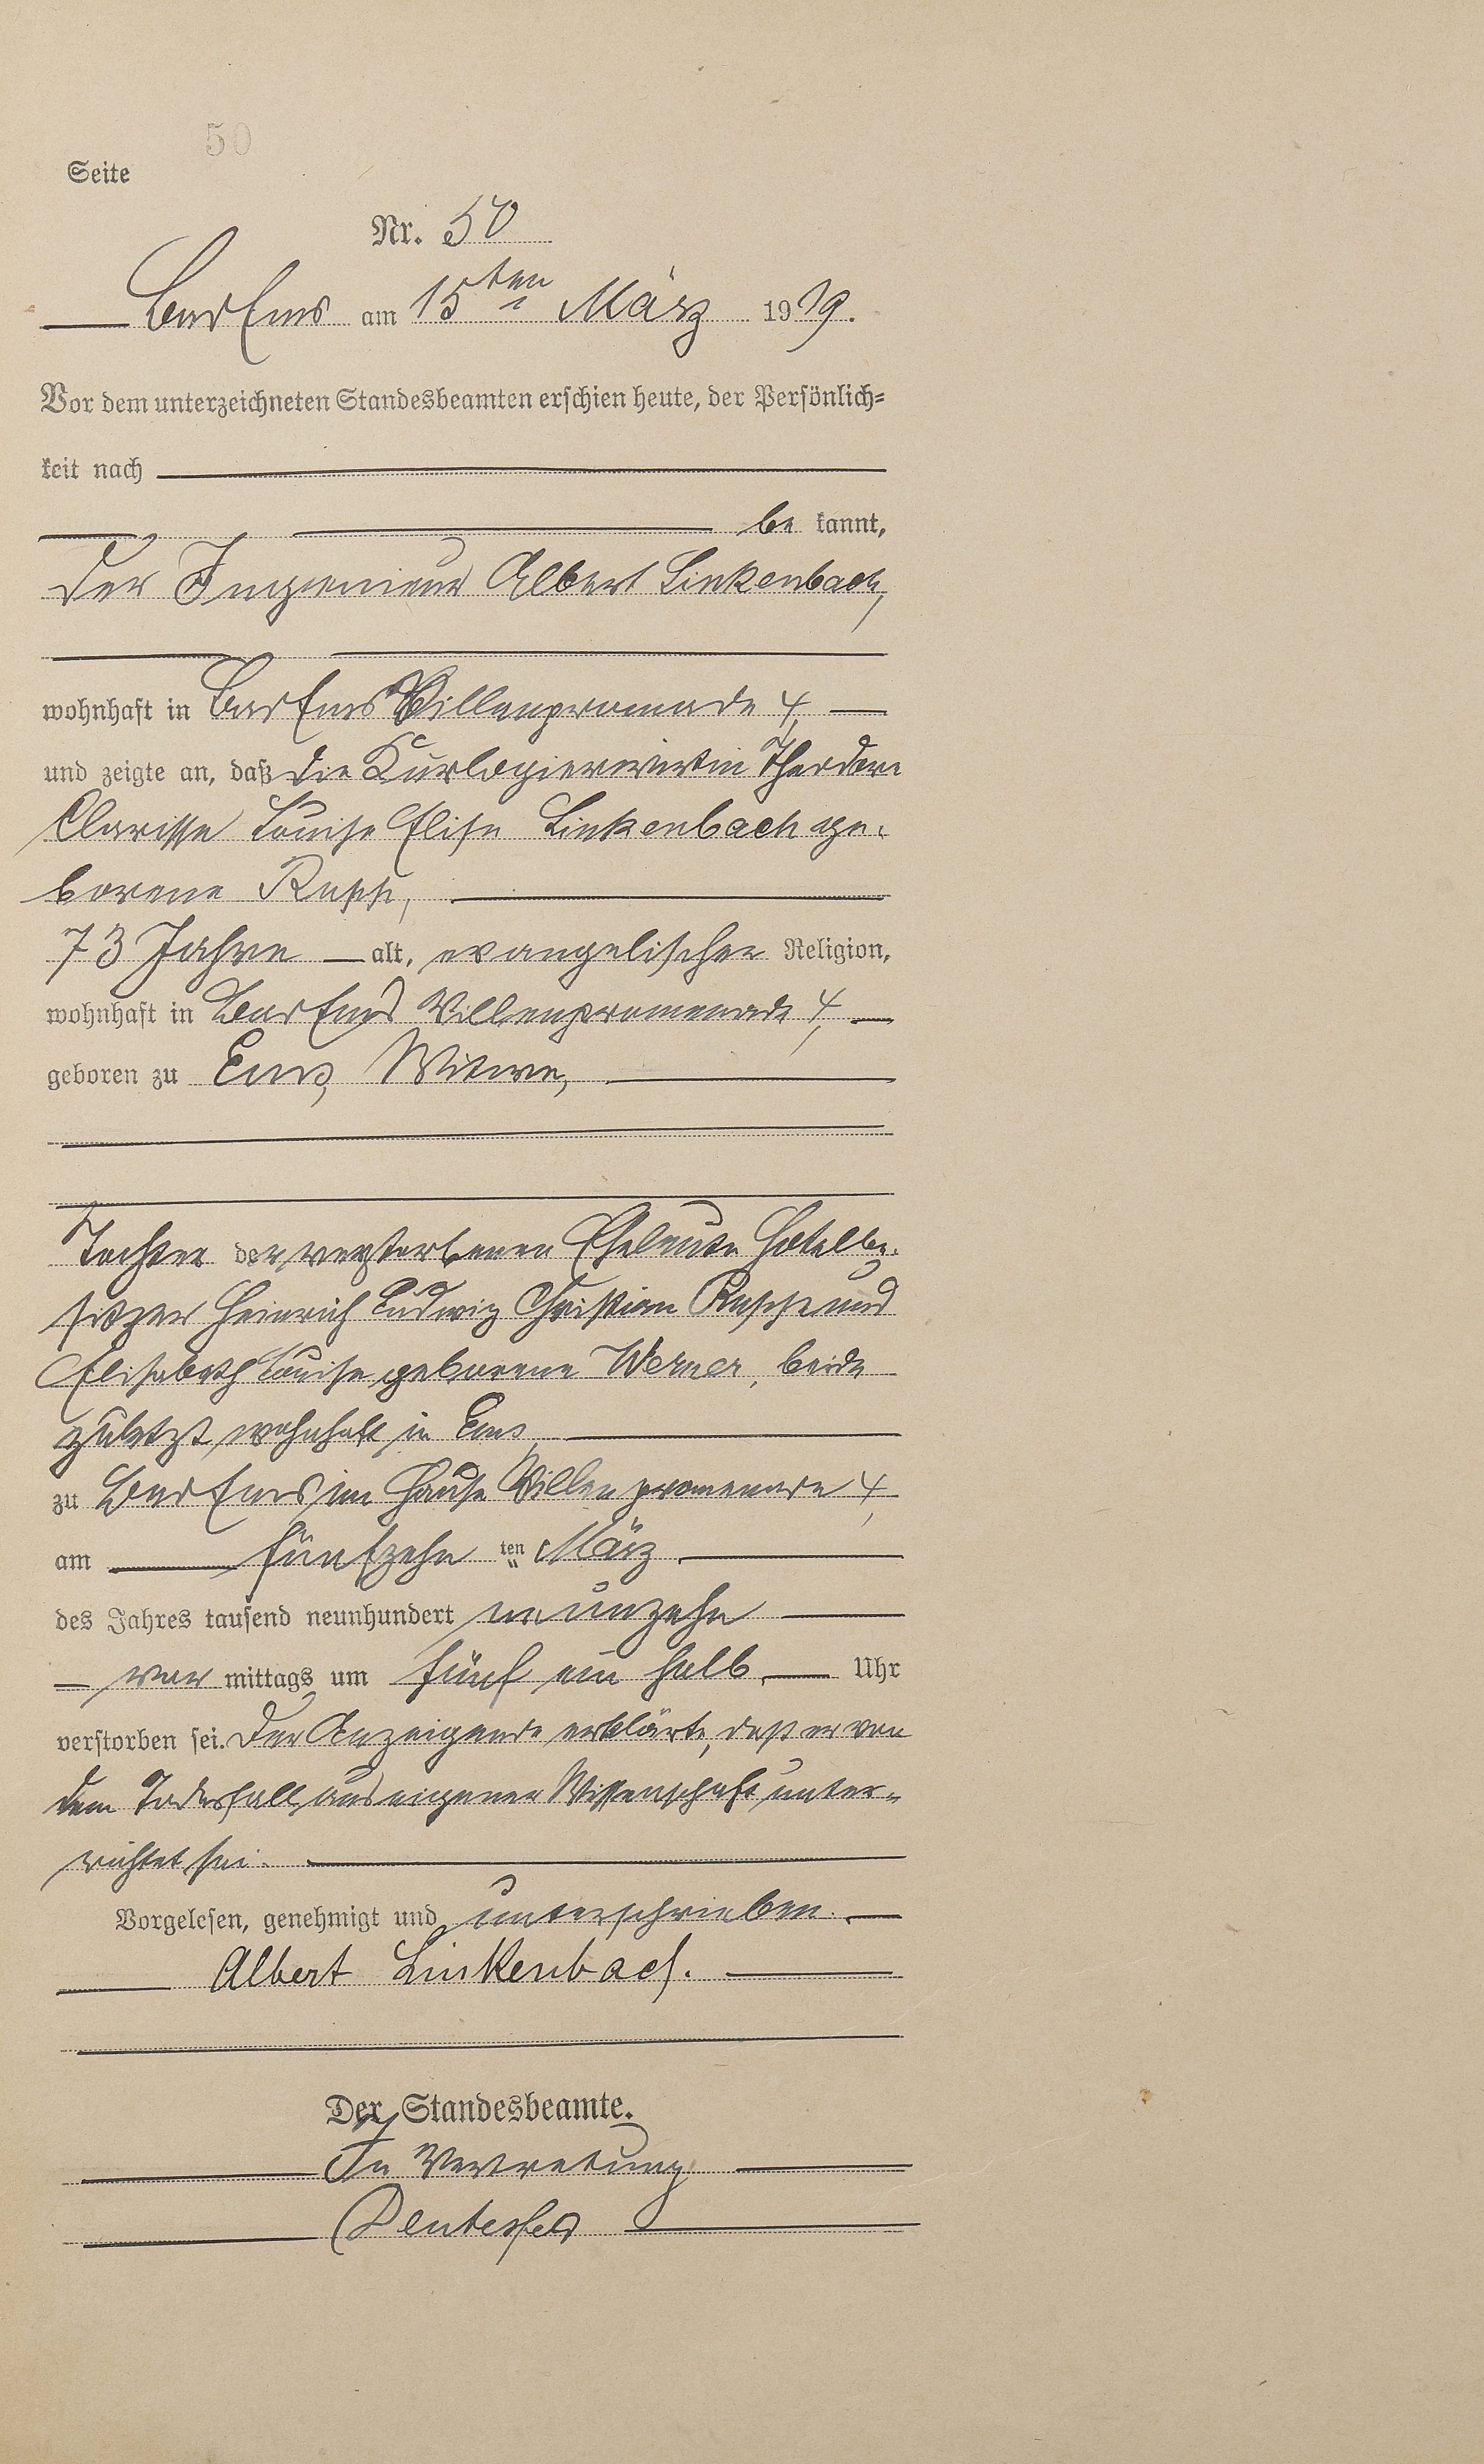 50
Seite
Nr. 50
Bad Ems am 15ten März 1919.
Vor dem unterzeichneten Standesbeamten erschien heute, der Persönlich-
keit nach
be kannt,
der Ingenieur Albert Linkenbach,
wohnhaft in Bad Ems Villenpromade 4,
und zeigte an, daß die Kurlogierwirtin Theodore
Clarisse Louise Elise Linkenbach ge-
borene Rupp,
73 Jahre alt, evangelischer Religion,
wohnhaft in Bad Ems Villenpromenade 4,
geboren zu Ems, Witwe,
Tochter der verstorbenen Eheleute Hotelbe-
sitzer Heinrich Ludwig Christian Rupp und
Elisabeth Louise geborene Werner, beide
zuletzt wohnhaft in Ems,
zu Bad Ems im Hause Villenpromenade 4,
am fünfzehn ten März
des Jahres tausend neunhundert neunzehn
vor mittags um fünf ein halb Uhr
verstorben sei. Der Anzeigende erklärte, daß er von
dem Todesfall aus eigener Wissenschaft unter-
richtet sei.
Vorgelesen, genehmigt und unterschrieben.
Albert Linkenbach.
Der Standesbeamte.
In Vertretung